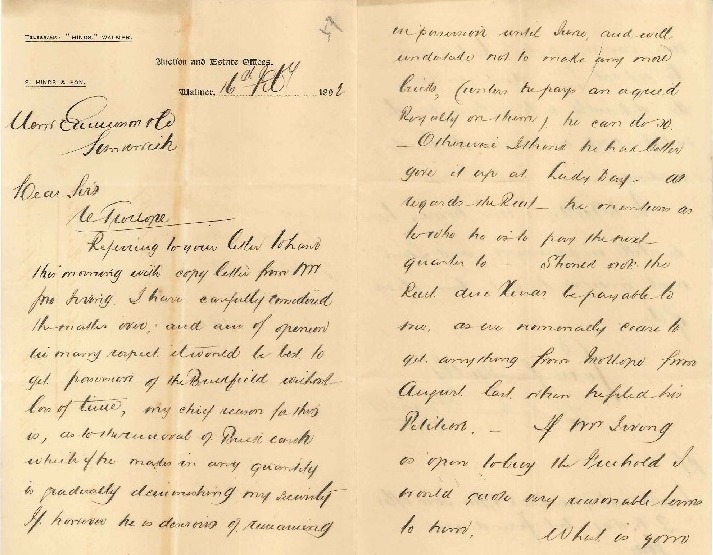 TELEGRAMS: "HINDS," WALMER.
54
Auction and Estate Offices,
S. HINDS & SON.
Walmer, 16th July 1892
Messrs Emmerson & Co
Sandwich
Dear Sirs
re Trollope
Referring to your letter to hand
this morning with copy letter from Mr
Jno Irving. I have carefully considered
the matter over, and am of opinion
in many respect it would be best to
get possession of the Brickfield without
loss of time, my chief reason for this
is, as to the removal of Brick earth
which if he makes in any quantity
is gradually diminishing my security
If however he is desirous of remaining
in possession until June, and will
undertake not to make any more
bricks, (unless he pays an agreed
Royalty on them) he can do so.
- Otherwise I think he had better
give it up at Lady Day - as
regards the Rent - he mentions as
to who he is to pay the next
quarter to - Should not the
Rent due Xmas be payable to
me, as we nominally cease to
get anything from Trollope from
August last when he filed his
Petition. - If Mr Irving
is open to buy the Freehold I
would quote very reasonable terms
to him. What is going